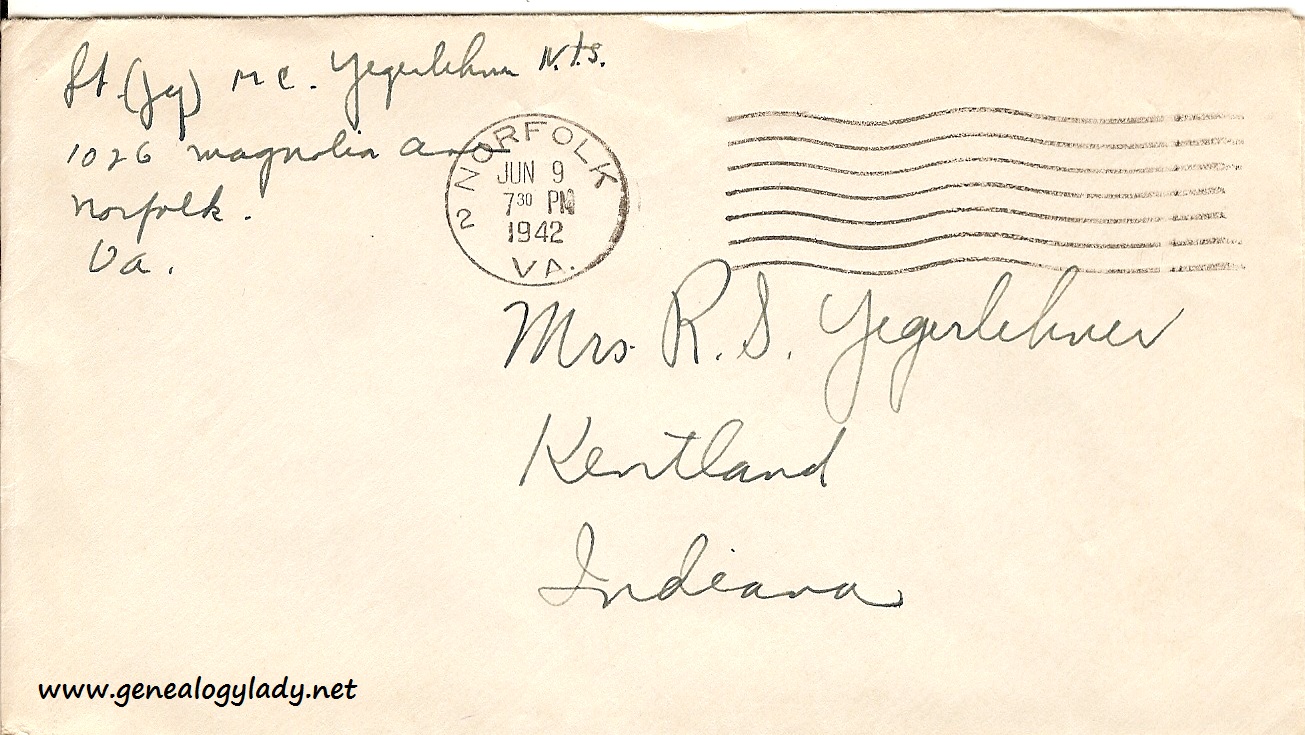 Lt. (jg) M C. Yegerlehner N.T.S.
1026 Magnolia Ave
Norfolk.
Va.
2 NORFOLK
JUN 9
7 30 PM
1942
VA.
Mrs. R. S. Yegerlehner
Kentland
Indiana
www.genealogylady.net